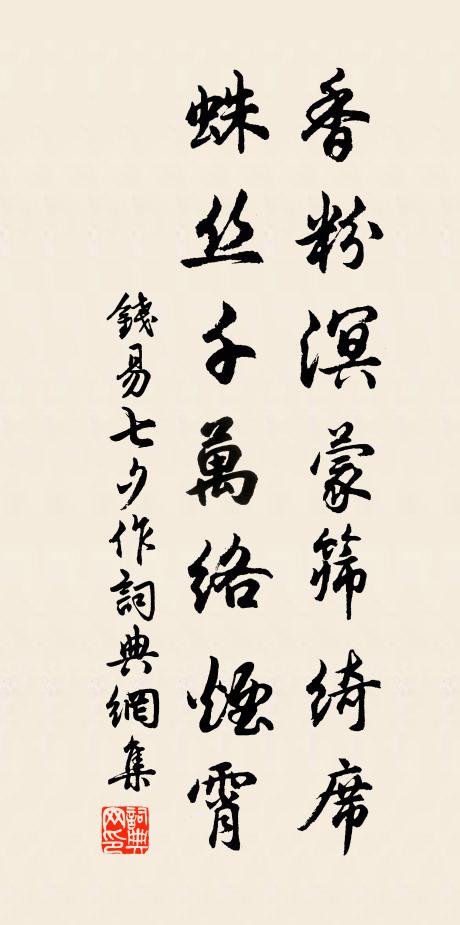 香粉溟蒙篩綺席
蛛丝千萬絡煙霄
錢易七夕作詞典網集
詞典网印